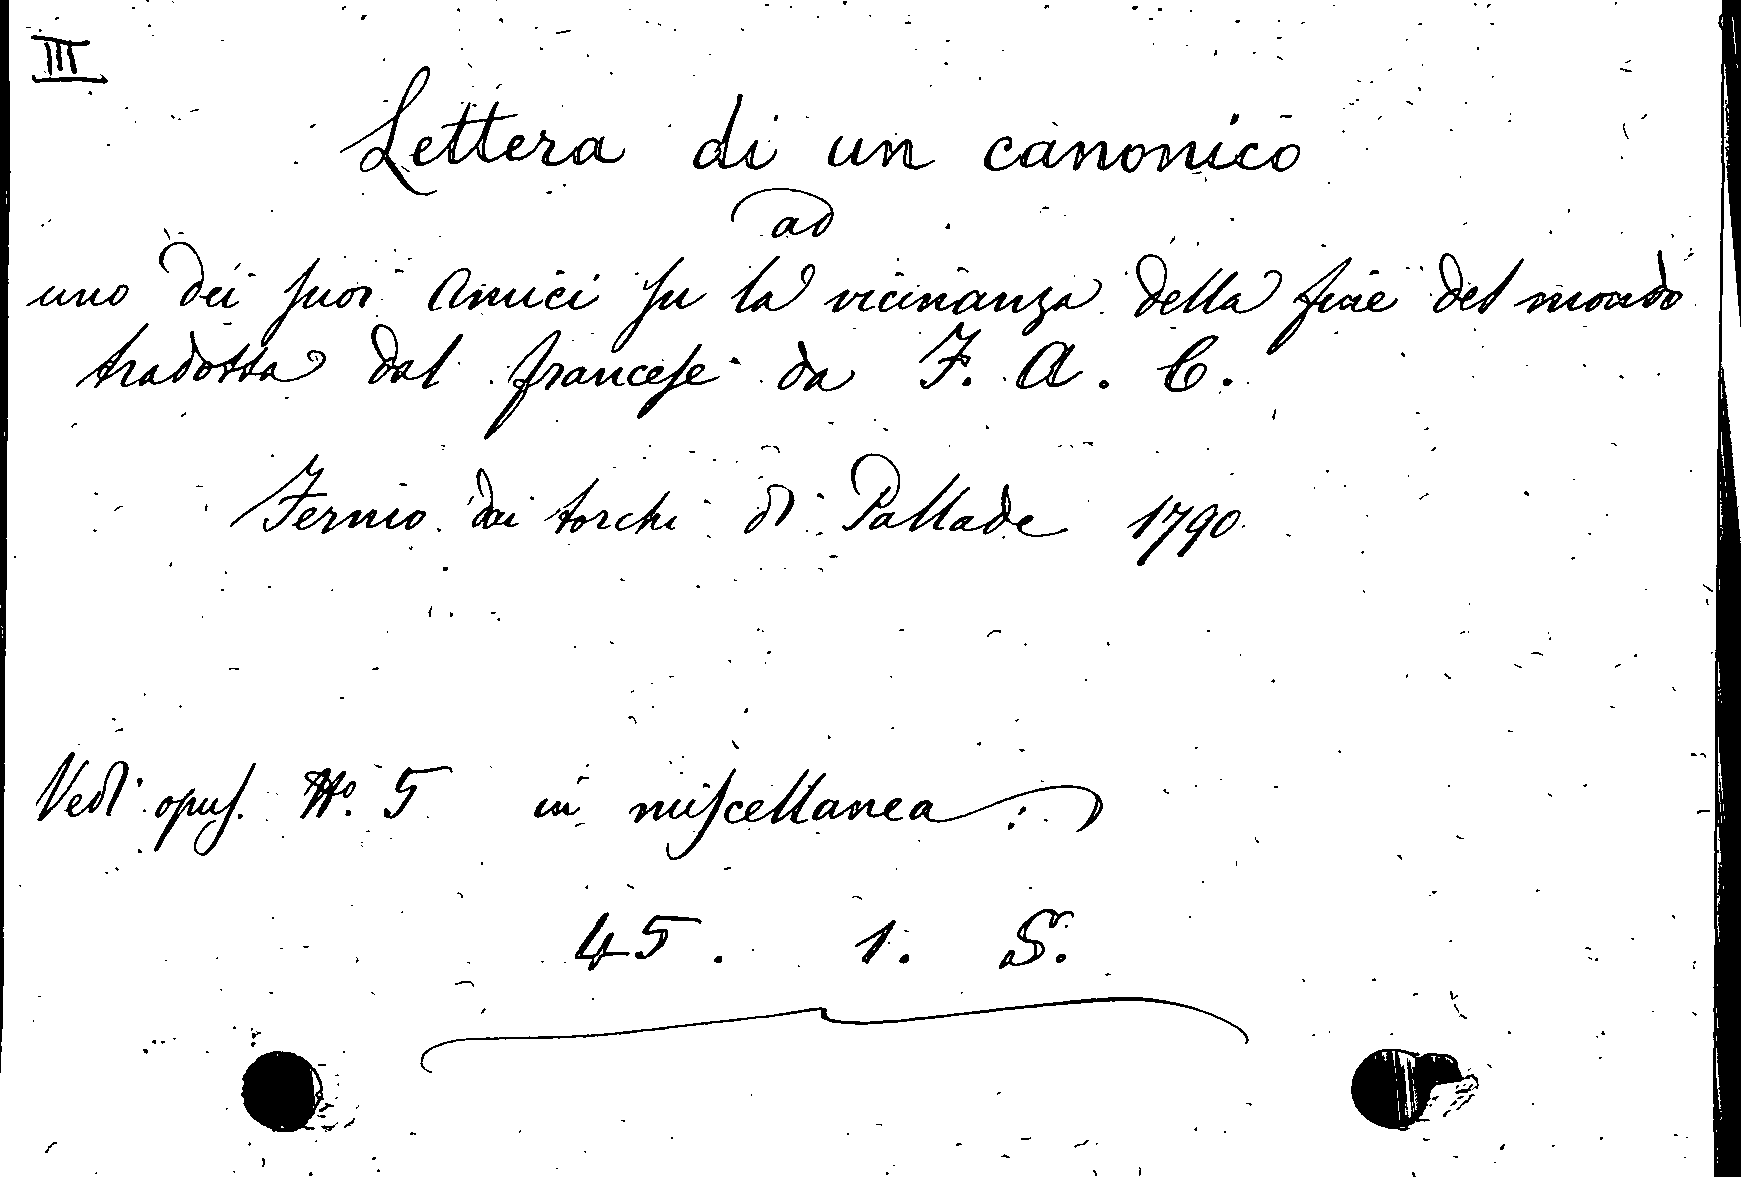 III
Lettera di un canonico
ad
uno dei suoi amici su la vicinanza della fine del mondo
tradotta dal francese da F. A. C.
Fermo dai torchi di Pallade 1790
Vedi opus. No. 5 in miscellanea:
45. 1. S.